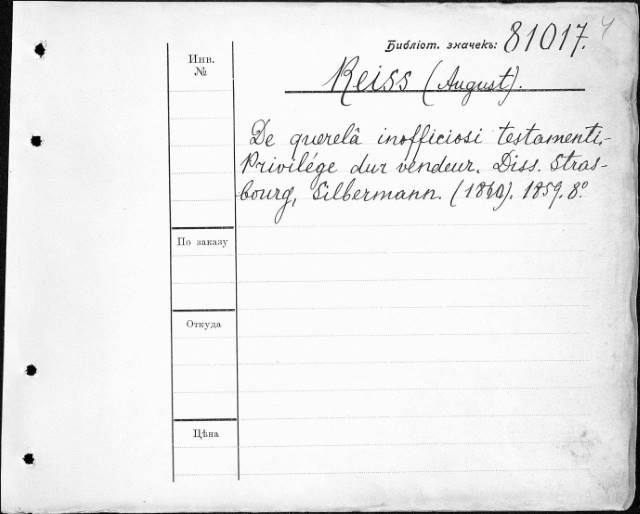 Библіот. значекъ: 81017. 4
Инв. №
Reiss (August).
De querelâ inofficiosi testamenti.-
Privilége dur vendeur. Diss. Stras-
bourg, Silbermann. (1860). 1859. 8°.
По заказу
Откуда
Цѣна